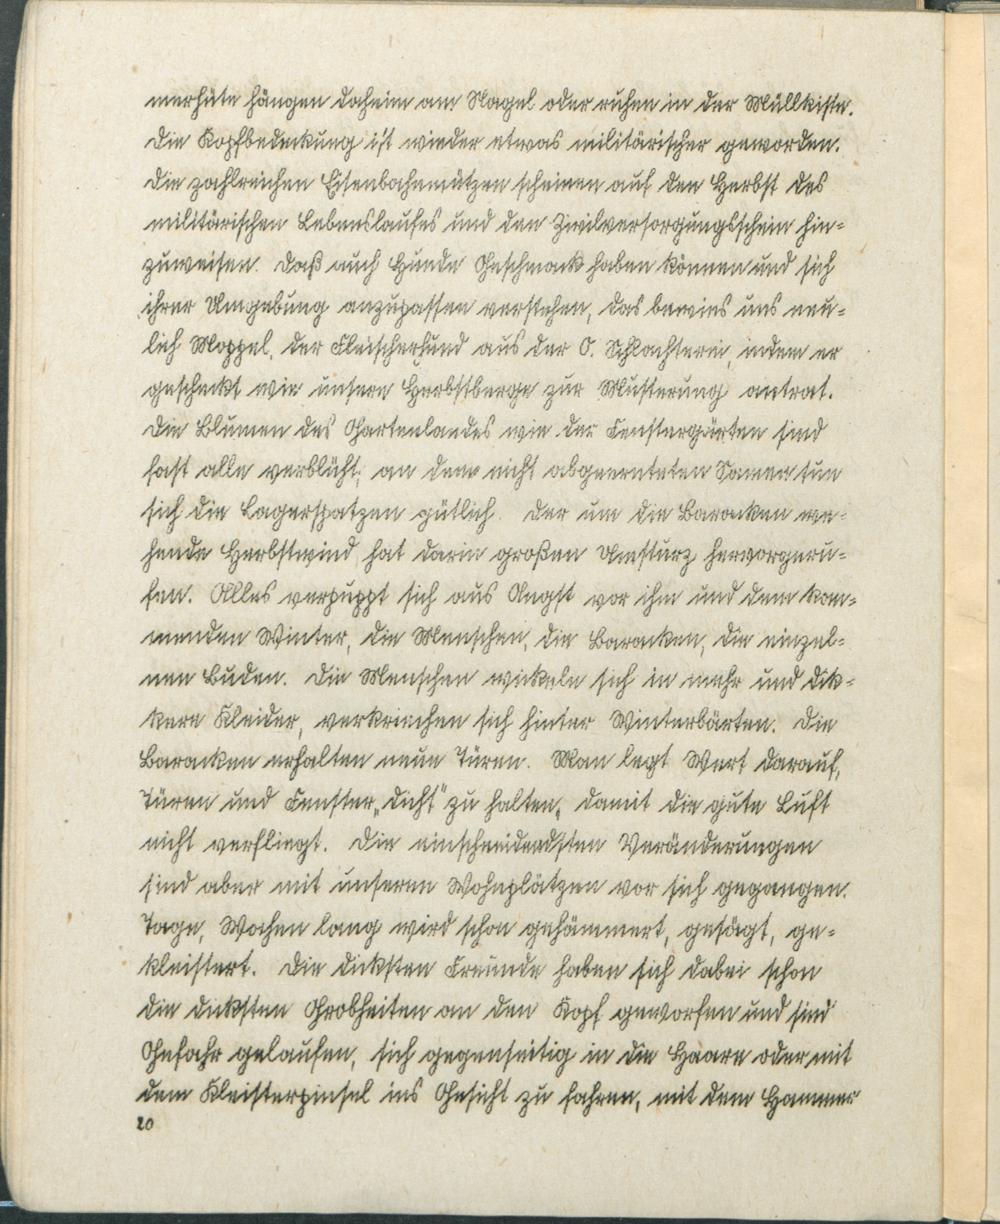 merhüte hängen daheim am Nagel oder ruhen in der Müllkiste.
Die Kopfbedeckung ist wieder etwas militärischer geworden.
Die zahlreichen Eisenbahnmützen scheinen auf den Herbst des
militärischen Lebenslaufes und den Zivilversorgungsschein hin-
zuweisen. Daß auch Hunde Geschmack haben können und sich
ihrer Umgebung anzupassen verstehen, das bewies uns neu-
lich Moppel, der Fleischerhund aus der O. Schlachterei, indem er
gescheckt wie unsere Herbstberge zur Musterung antrat.
Die Blumen des Gartenlandes wie der Fenstergärten sind
fast alle verblüht; an dem nicht abgeernteten Samen tun
sich die Lagerspatzen gütlich. Der um die Baracken we-
hende Herbstwind hat darin großen Umsturz hervorgeru-
fen. Alles verpuppt sich aus Angst vor ihm und dem kom-
menden Winter, die Menschen, die Baracken, die einzel-
nen Buden. Die Menschen wickeln sich in mehr und dik-
kere Kleider, verkriechen sich hinter Winterbärten. Die
Baracken erhalten neue Türen. Man legt Wert darauf,
Türen und Fenster „dicht" zu halten, damit die gute Luft
nicht verfliegt. Die einschneidendsten Veränderungen
sind aber mit unseren Wohnplätzen vor sich gegangen.
Tage, Wochen lang wird schon gehämmert, gesägt, ge-
kleistert. Die dicksten Freunde haben sich dabei schon
die dicksten Grobheiten an den Kopf geworfen und sind
Gefahr gelaufen, sich gegenseitig in die Haare oder mit
dem Kleisterpinsel ins Gesicht zu fahren, mit dem Hammer
20